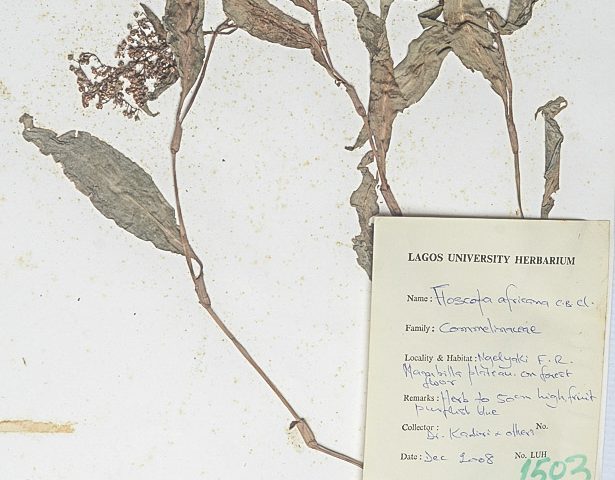 LAGOS UNIVERSITY HERBARIUM
Name: Floscopa africana C.B. Cl.
Family: Commelinaceae
Locality & Habitat: Ngelyaki F. R.
Mambilla plateau. on forest
floor
Remarks: Herb to 50cm high fruit
purplish blue
Collector: Dr. Kadiri & others No.
Date: Dec 2008 No. LUH
1503